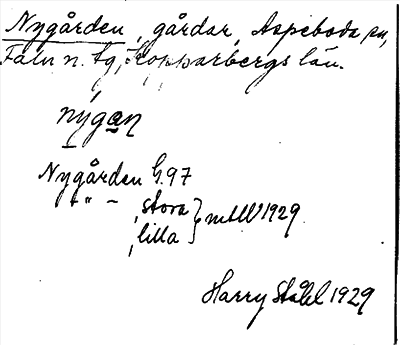 Nygården, gårdar, Aspeboda sn,
Falu n. tg, Kopparbergs län.
nýgan
Nygården G.97
-"- , stora } mtlU 1929.
, lilla
Harry Ståhl 1929